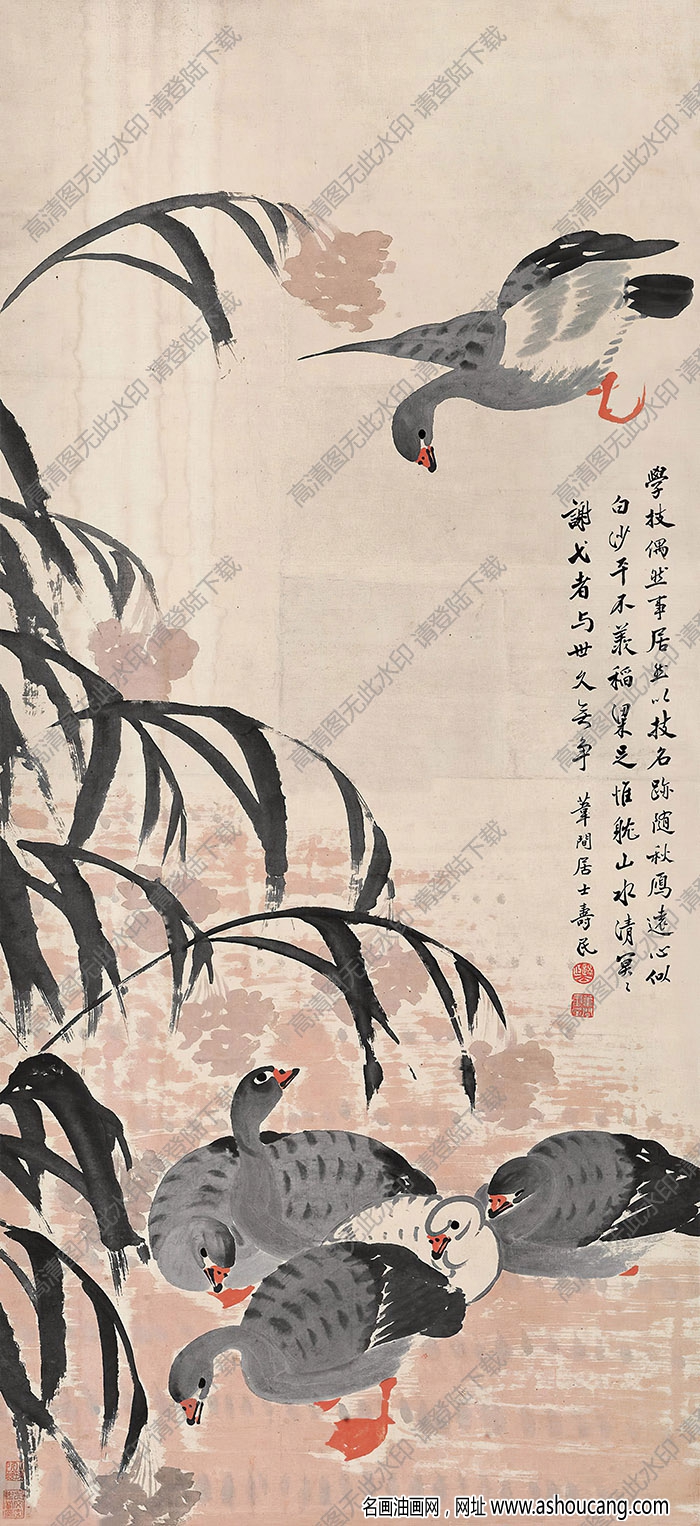 學技偶然事居然以技名跡随秋鴈遠心似
白沙平不羨稻梁足惟躭山水清冥〻
謝弋者与世久無争
葦間居士壽民
高清图无此水印 请登陆下载
名画油画网，网址 www.ashoucang.com